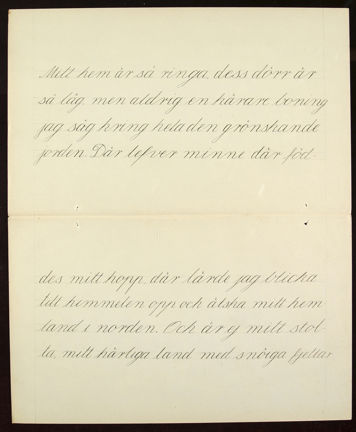 Mitt hem är så ringa, dess dörr är
så låg, men aldrig en kärare boning
jag såg kring hela den grönskande
jorden. Där lefver minne där föd-
des mitt hopp, där lärde jag blicka
till himmelen opp och älska mitt hem-
land i norden. Och är ej mitt stol-
ta, mitt härliga land med snöiga fjellar